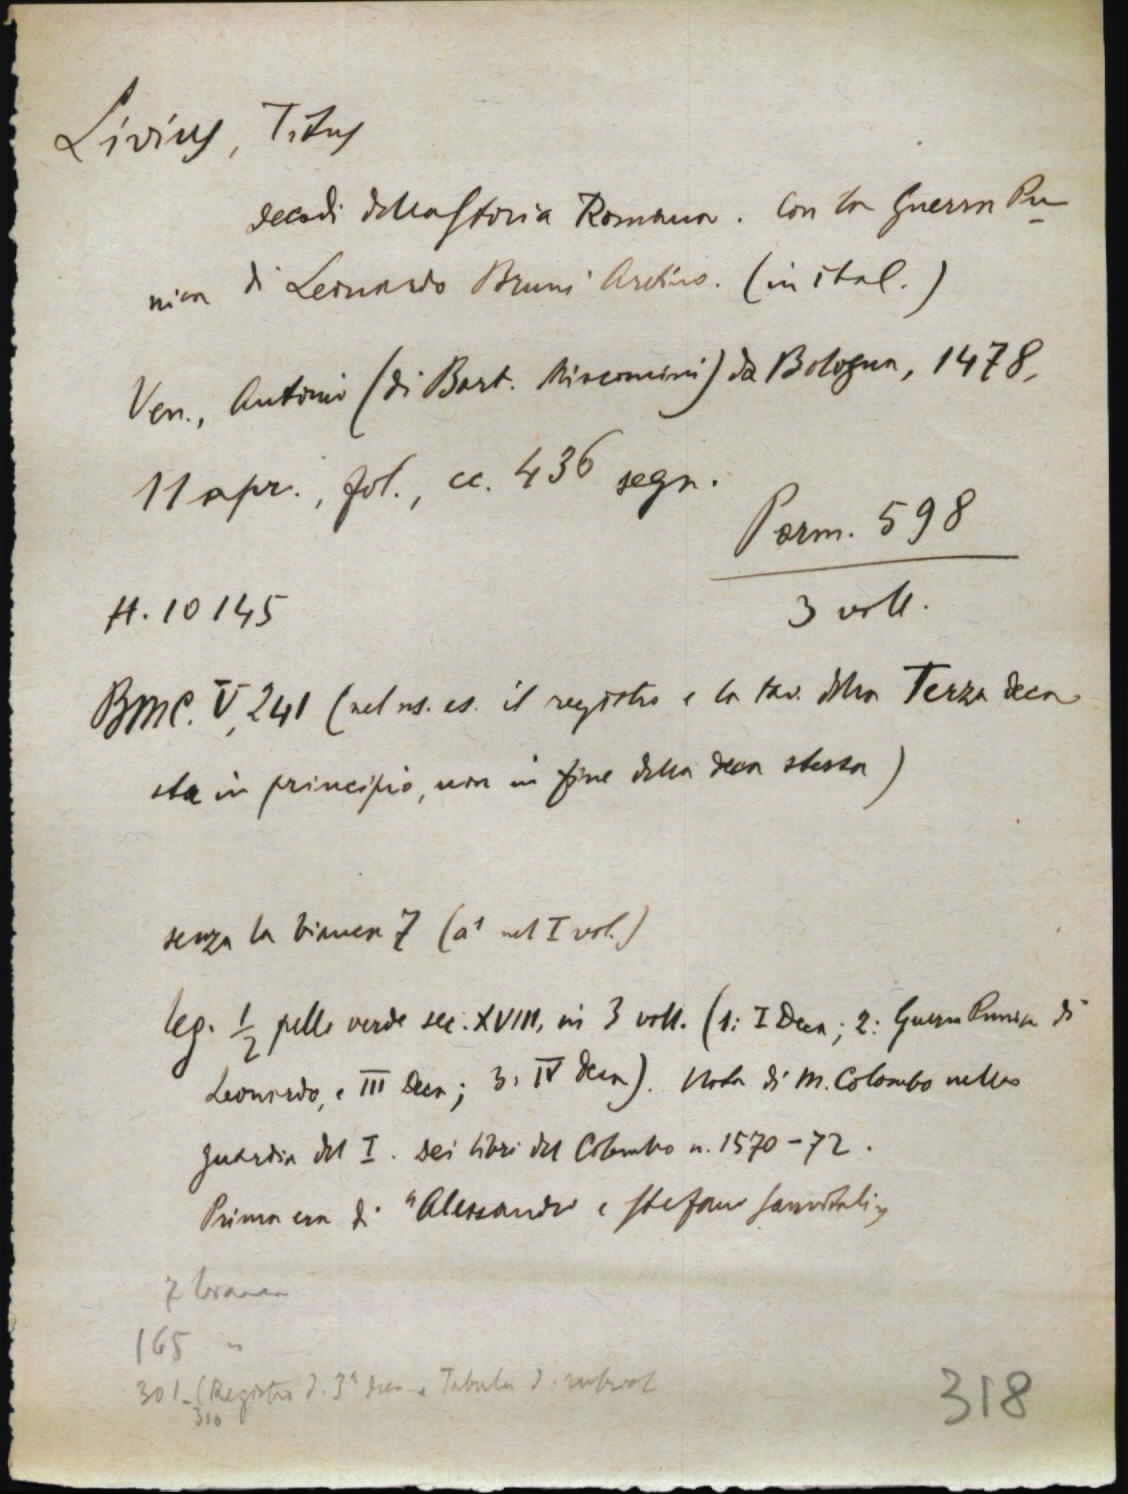 Livius, Titus
decadi della Storia Romana. Con la Guerra Pu-
nica di Leonardo Bruni Aretino. (in ital.)
Ven., Antonio (di Bart. Miscomini) da Bologna, 1478,
11 apr., fol., cc. 436 segn.
Parm. 598
3 voll.
H. 10145
BMC. V, 241 (nel ns. es. il registro e la tav. della Terza deca
sta in principio, non in fine della deca stessa)
senza la bianca 7 (a¹ nel I vol.)
leg. 1/2 pelle verde sec. XVIII, in 3 voll. (1: I Deca; 2: Guerra Punica di
Leonardo, e III Deca; 3: IV Deca). Nota di M. Colombo nella
guardia del I. Dei libri del Colombo n. 1570-72.
Prima era di "Alessandro e Stefano Sanvitali"
7 bianca
165 "
301-310 (Registro d. 3ª deca e Tabula d.
318